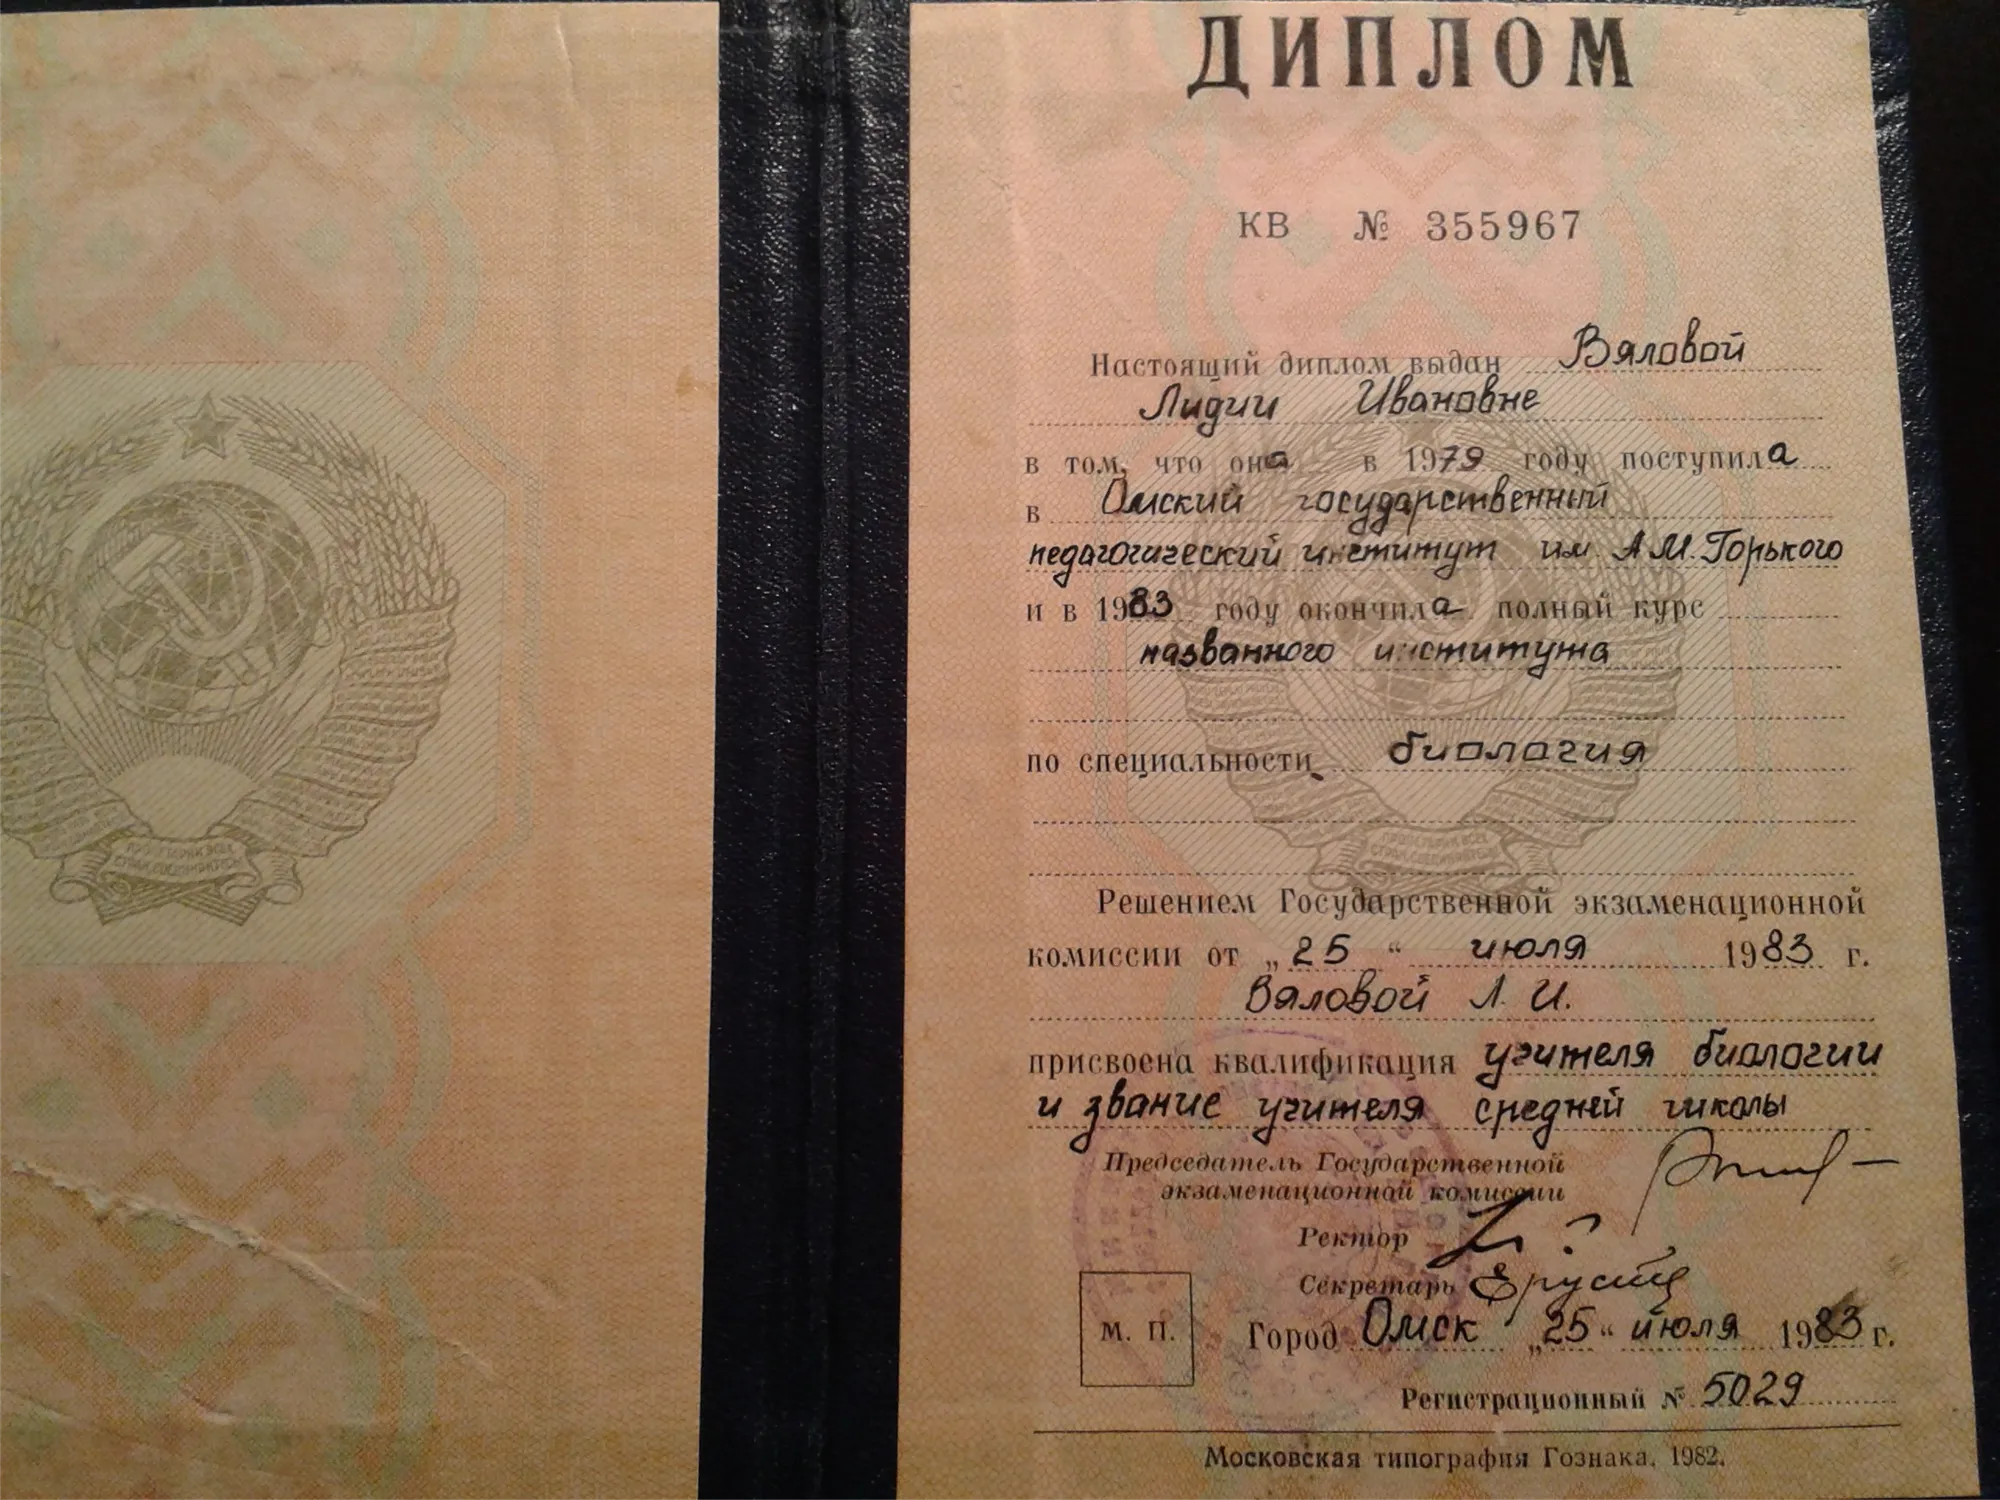 ДИПЛОМ
КВ № 355967
Настоящий диплом выдан Вяловой
Лидии Ивановне
в том, что она в 1979 году поступила
в Омский государственный
педагогический институт им. А.М.Горького
и в 1983 году окончила полный курс
названного института
по специальности биология
Решением Государственной экзаменационной
комиссии от „25“ июля 1983 г.
Вяловой Л. И.
присвоена квалификация учителя биологии
и звание учителя средней школы
Председатель Государственной
экзаменационной комиссии
Ректор
Секретарь
М. П. Город Омск „25“ июля 1983 г.
Регистрационный № 5029
Московская типография Гознака. 1982.